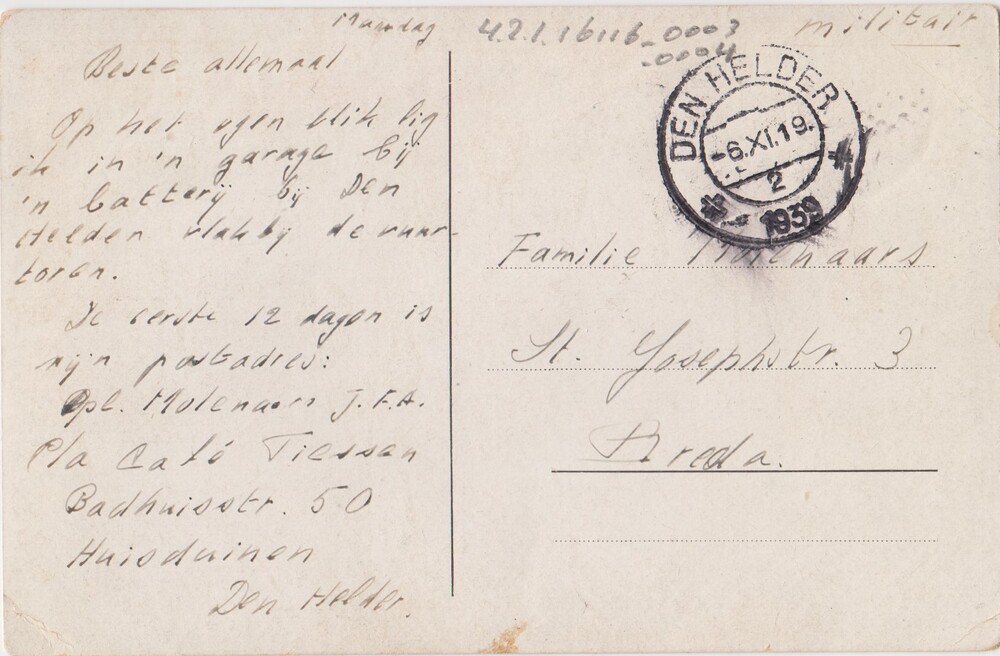 Maandag
Beste allemaal
Op het ogenblik lig
ik in 'n garage bij
'n batterij bij Den
Helder vlakbij de vuur-
toren.
De eerste 12 dagen is
mijn postadres:
Kpl. Molenaars J.F.A.
P/a Café Tiessen
Badhuisstr. 50
Huisduinen
Den Helder.
421.16116_0003
_0004
militair
DEN HELDER
-6.XI.19.
2
1939
Familie Molenaars
St. Josephstr. 3
Breda.